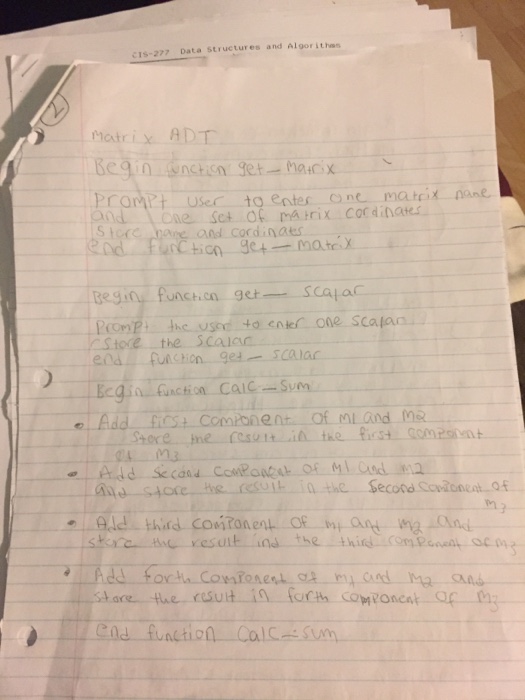 CIS-277 Data Structures and Algorithms
2
Matrix ADT
Begin function get - Matrix
Prompt user to enter one matrix name
and one set of matrix cordinates
Store name and cordinates
end function get - matrix
Begin function get - scalar
Prompt the user to enter one scalar
Store the scalar
end function get - scalar
Begin function Calc - Sum
• Add first component of M1 and M2
Store the result in the first component
of M3
• Add Second Component of M1 and m2
and store the result in the Second Component of
m3
• Add third component of m1 and m2 and
store the result ind the third component of m3
• Add forth Component of m1 and m2 and
store the result in forth component of m3
end function Calc - sum